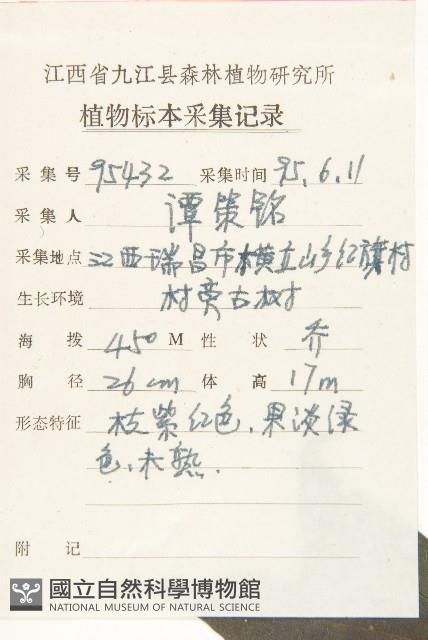 江西省九江县森林植物研究所
植物标本采集记录
采集号 95432 采集时间 95.6.11
采集人 谭策铭
采集地点 江西瑞昌市横立山乡红旗村
生长环境 村旁古树
海拨 450 M 性状 乔
胸径 26cm 体高 17m
形态特征 枝紫红色.果淡绿
色.未熟.
附记
國立自然科學博物館
NATIONAL MUSEUM OF NATURAL SCIENCE